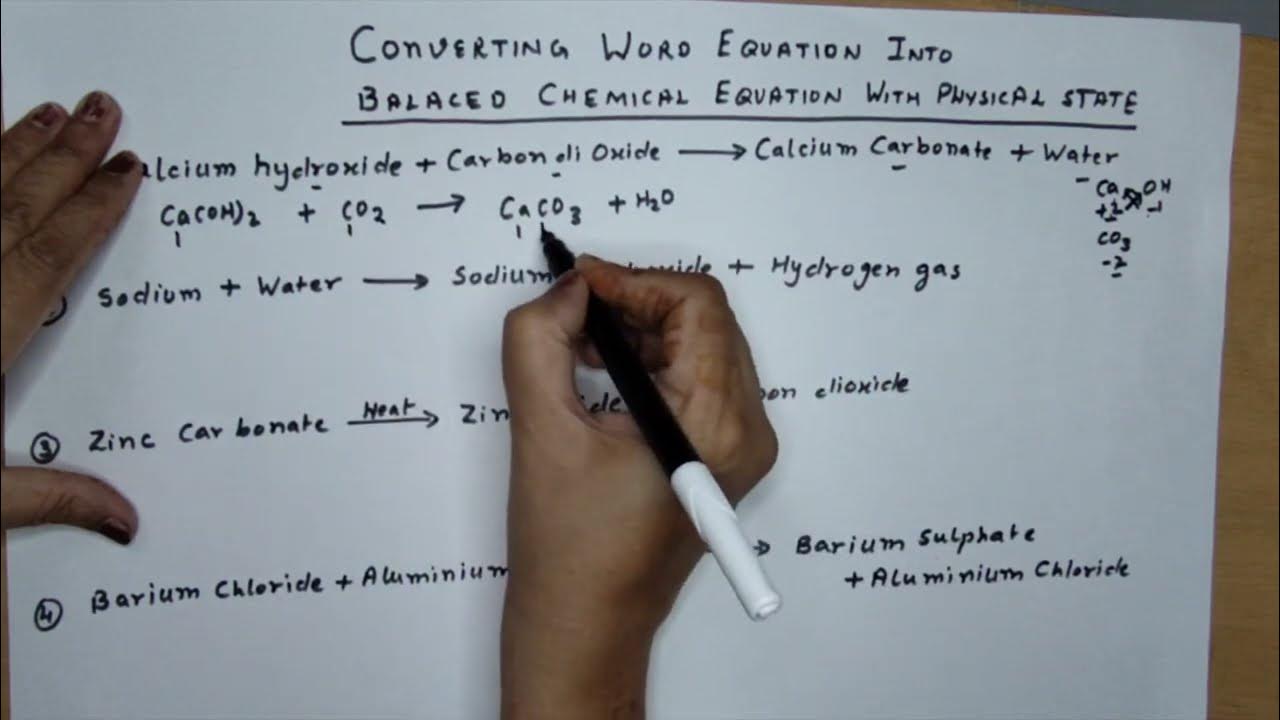 CONVERTING WORD EQUATION INTO
BALACED CHEMICAL EQUATION WITH PHYSICAL STATE
alcium hydroxide + Carbon di Oxide → Calcium Carbonate + Water
Ca(OH)2 + CO2 → CaCO3 + H2O
Ca OH
+2 -1
CO3
-2
Sodium + Water → Sodium + Hydrogen gas
③ Zinc Carbonate Heat→ Zin dioxide
④ Barium Chloride + Aluminium → Barium Sulphate
+ Aluminium Chloride